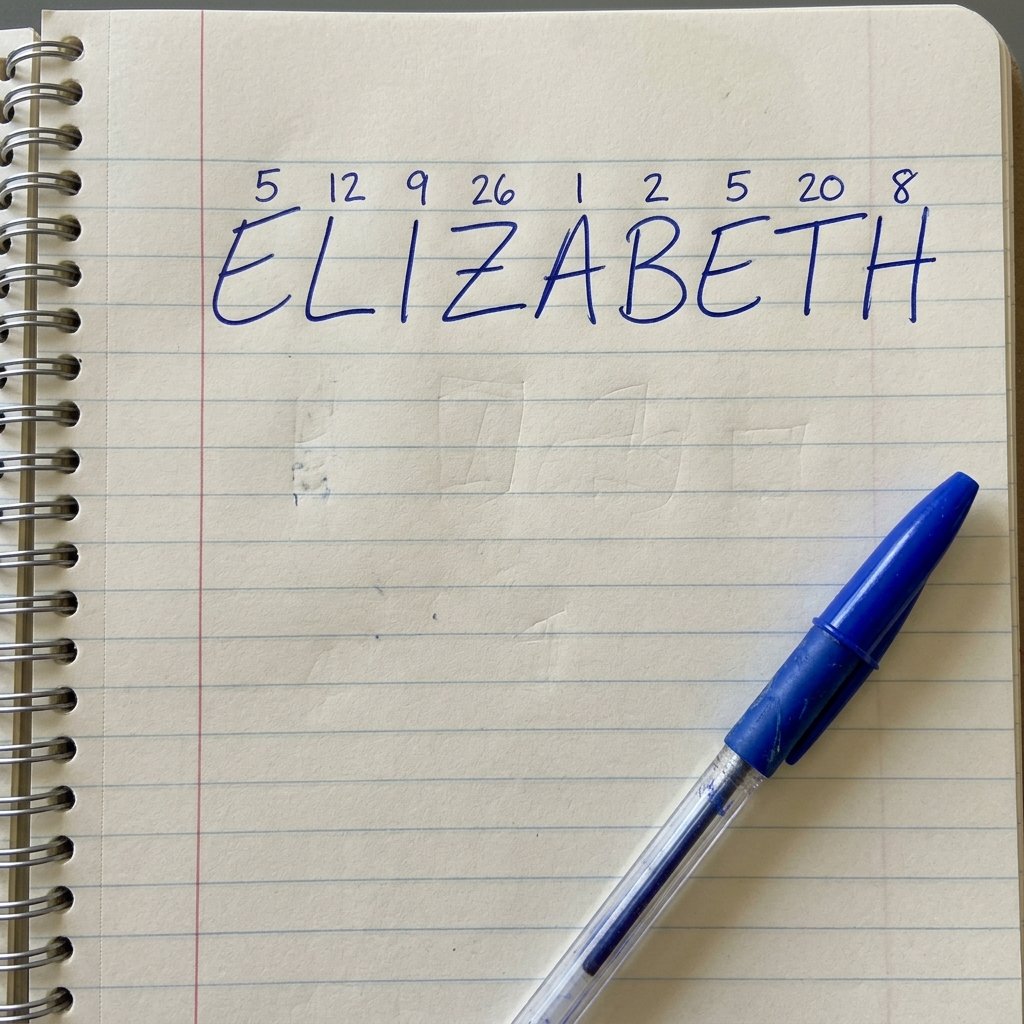 5 12 9 26 1 2 5 20 8
ELIZABETH